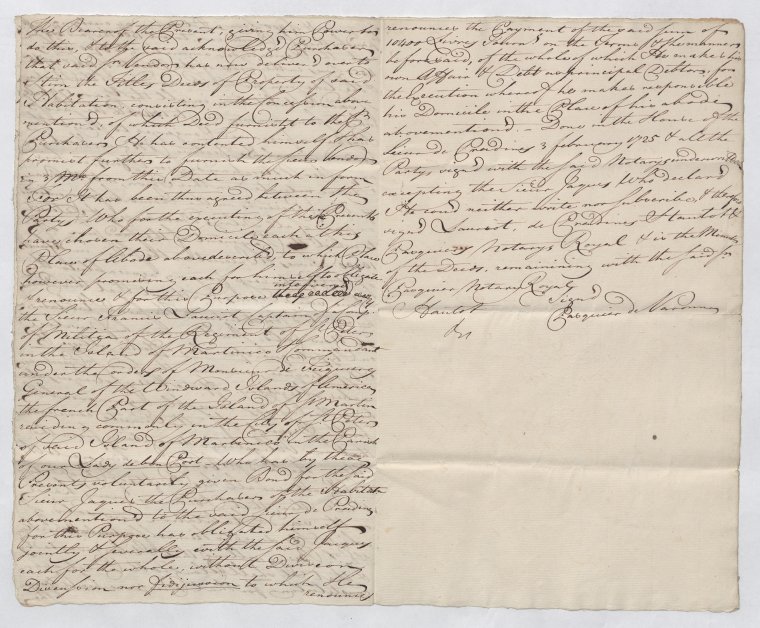 This Bearer of the Present, giving him Power for
do this, & to the said acknowledged Purchaser
that said Sr. Vendor has now delivered over to
him the Titles Deeds of Property of said
Habitation, consisting in the Concession above
mention'd, of which Deed promist to the Sr.
Purchaser. He has contented himself & has
promist further to furnish the
in 3 Mo. from this Date as much in form
For It has been thus agreed between the
Party, Who for the executing of these Presents
have chosen their Domicile, each in this
Place of Abode above descrited to which Place
however promising each for himself to obligate
renounce & for this Purpose
the Sieur Francis Laurent Captain of a Comp.
of Militia of the Regiment of St. Peters
in the Island of Martinico Commandant
under the Orders of Monsieur de Feuquieres
General of the Windward Islands of America
the french Part of the Island of St. Martin
residing commonly in the City of St. Peters
of said Island of Martinico in the Parish
of our Lady de bon Port. Who has by these
Presents voluntarily given Bond for the said
Sieur Jaques the Purchaser of the Habitatn
abovemention'd to the said Sieur de Pradines
for this Purpose has obligated himself
jointly & severally with the said Jaques
each for the whole, without Division,
Divension nor fidijussion to which He
renounces
renounces the Payment of the said Sum of
10400 Livres Tourns on the Terms & the manners
beforesaid, of the whole of which He makes his
own Affair & Debt as principal Debtors, for
the Execution whereof he makes responsible
his Domicile in the Place of his abode
abovementiond. - Done in the House of the
Sieur de Pradines 3 february 1725 & All the
Partys signd with the said Notarys underwritten
excepting the Sieur Jaques Who declared
He could neither write nor subscribe, & they
signd Laurent, de Pradines Hautot &
Pasquier Notarys Royal & is the Minute
of the Deeds, remaining with the said Sr
Pasquier Notary Royal,
Signd
Hautot Pasquier de Varennes